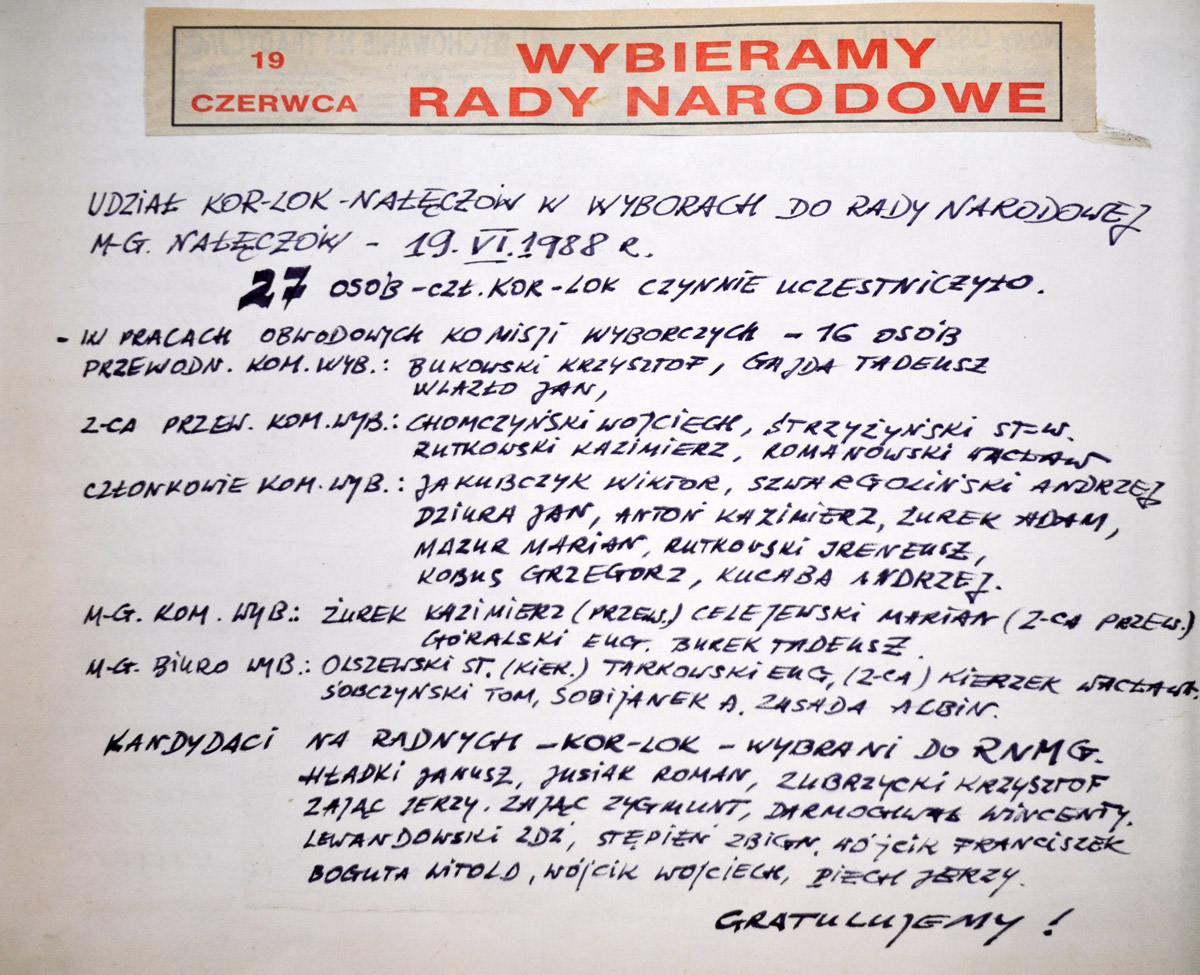 19 CZERWCA
WYBIERAMY
RADY NARODOWE
UDZIAŁ KOR-LOK-NAŁĘCZÓW W WYBORACH DO RADY NARODOWEJ
M-G. NAŁĘCZÓW - 19.VI.1988 R.
27 OSÓB - CZŁ. KOR-LOK CZYNNIE UCZESTNICZYŁO.
- W PRACACH OBWODOWYCH KOMISJI WYBORCZYCH - 16 OSÓB
PRZEWODN. KOM. WYB.: BUKOWSKI KRZYSZTOF, GAJDA TADEUSZ
WLAZŁO JAN,
Z-CA PRZEW. KOM. WYB.: CHOMCZYŃSKI WOJCIECH, STRZYŻYŃSKI ST-W.
RUTKOWSKI KAZIMIERZ, ROMANOWSKI WACŁAW
CZŁONKOWIE KOM. WYB.: JAKUBCZYK WIKTOR, SZWARGOLIŃSKI ANDRZEJ
DZIURA JAN, ANTOŃ KAZIMIERZ, ŻUREK ADAM,
MAZUR MARIAN, RUTKOWSKI IRENEUSZ,
KOBUS GRZEGORZ, KUCABA ANDRZEJ.
M-G. KOM. WYB.: ŻUREK KAZIMIERZ (PRZEW.) CELEJEWSKI MARIAN (Z-CA PRZEW.)
GÓRALSKI EUG. BUREK TADEUSZ.
M-G. BIURO WYB.: OLSZEWSKI ST. (KIER.) TARKOWSKI EUG, (Z-CA) KIERZEK WACŁAW.
SOBCZYŃSKI TOM, SOBIJANEK A. ZASADA ALBIN.
KANDYDACI NA RADNYCH - KOR-LOK - WYBRANI DO RNMG.
HŁADKI JANUSZ, JUSIAK ROMAN, ZUBRZYCKI KRZYSZTOF
ZAJĄC JERZY. ZAJĄC ZYGMUNT, DARMOCHWAŁ WINCENTY.
LEWANDOWSKI ZDZ, STĘPIEŃ ZBIGN. WÓJCIK FRANCISZEK
BOGUTA WITOLD, WÓJCIK WOJCIECH, PIECH JERZY.
GRATULUJEMY !